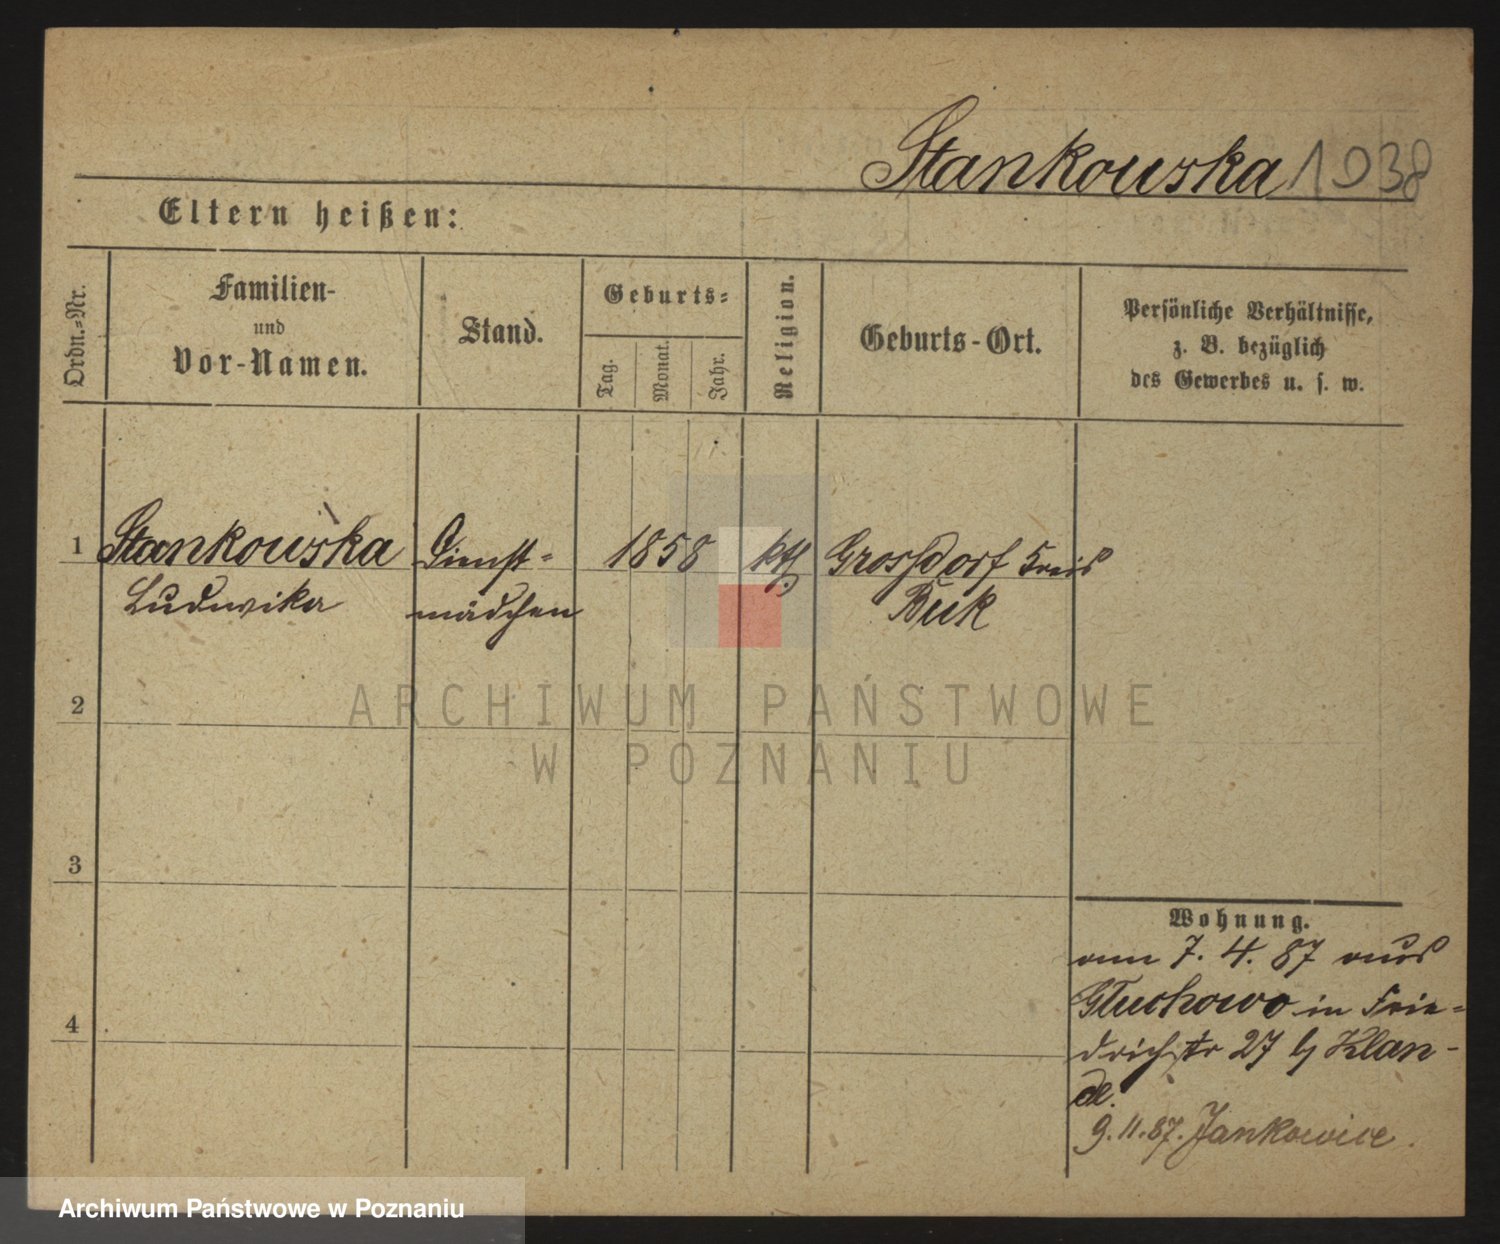 Stankowska 1038
Eltern heißen:
Ordn.-Nr.
Familien-
und
Vor-Namen.
Stand.
Geburts-
Tag.
Monat.
Jahr.
Religion.
Geburts-Ort.
Persönliche Verhältnisse,
z. B. bezüglich
des Gewerbes u. s. w.
1 Stankowska Dienst= 1858 kth. Grossdorf Kreis
Ludwika mädchen Buk
2
ARCHIWUM PAŃSTWOWE
W POZNANIU
3
Wohnung.
am 7. 4. 87 aus
Gluchowo in Frie=
4
drichstr 27 b/ Klan-
de.
9. 11. 87. Jankowice.
Archiwum Państwowe w Poznaniu